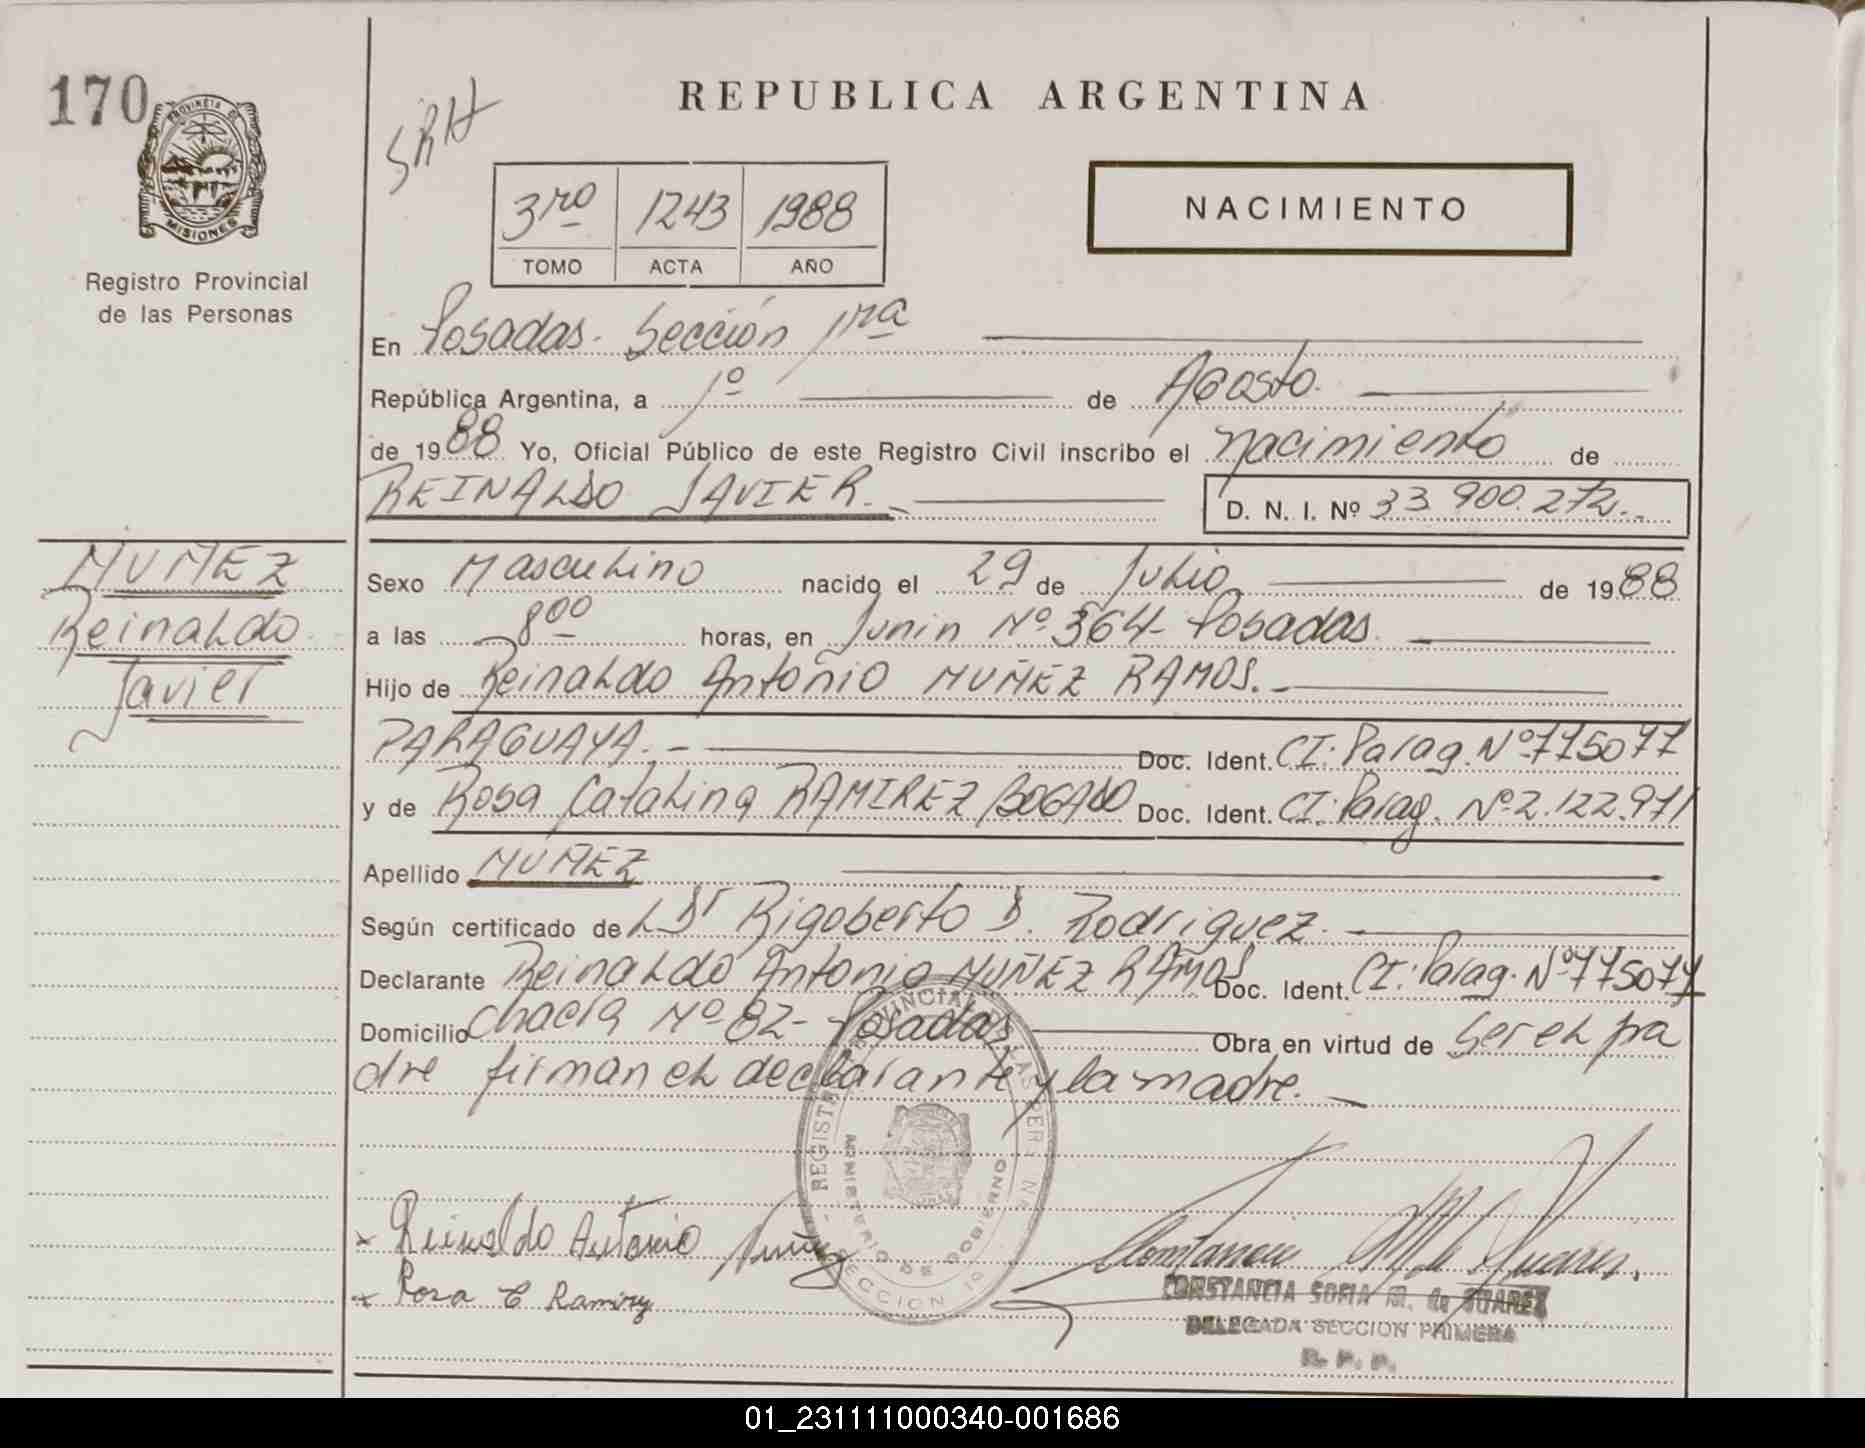 170
PROVINCIA DE
MISIONES
Registro Provincial
de las Personas
SRH
REPUBLICA ARGENTINA
3ro 1243 1988
TOMO ACTA AÑO
NACIMIENTO
En Posadas. Sección 1ra
República Argentina, a 1º de Agosto.
de 1988 Yo, Oficial Público de este Registro Civil inscribo el nacimiento de
REINALDO JAVIER.-
D. N. I. Nº 33.900.272.-
MUÑEZ
Reinaldo
Javier
Sexo Masculino nacido el 29 de Julio de 1988
a las 8 00 horas, en Junin Nº 364- Posadas.
Hijo de Reinaldo Antonio MUÑEZ RAMOS.-
PARAGUAYA.- Doc. Ident. CI: Parag. Nº 775077
y de Rosa Catalina RAMIREZ BOGADO Doc. Ident. CI: Parag. Nº 2.122.971
Apellido MUÑEZ
Según certificado de L Dr Rigoberto D. Rodriguez.
Declarante Reinaldo Antonio MUÑEZ RAMOS Doc. Ident. CI: Parag. Nº 775077
Domicilio chacra Nº 82- Posadas Obra en virtud de ser el pa
dre firman el declarante y la madre.-
REGISTRO PROVINCIAL DE LAS PERSONAS
MINISTERIO DE GOBIERNO
SECCION 1a
x Reinaldo Antonio Muñez
x Rosa C Ramirez
Constancia M de Suarez.
CONSTANCIA SOFIA M. de SUAREZ
DELEGADA SECCION PRIMERA
R. P. P.
01_231111000340-001686